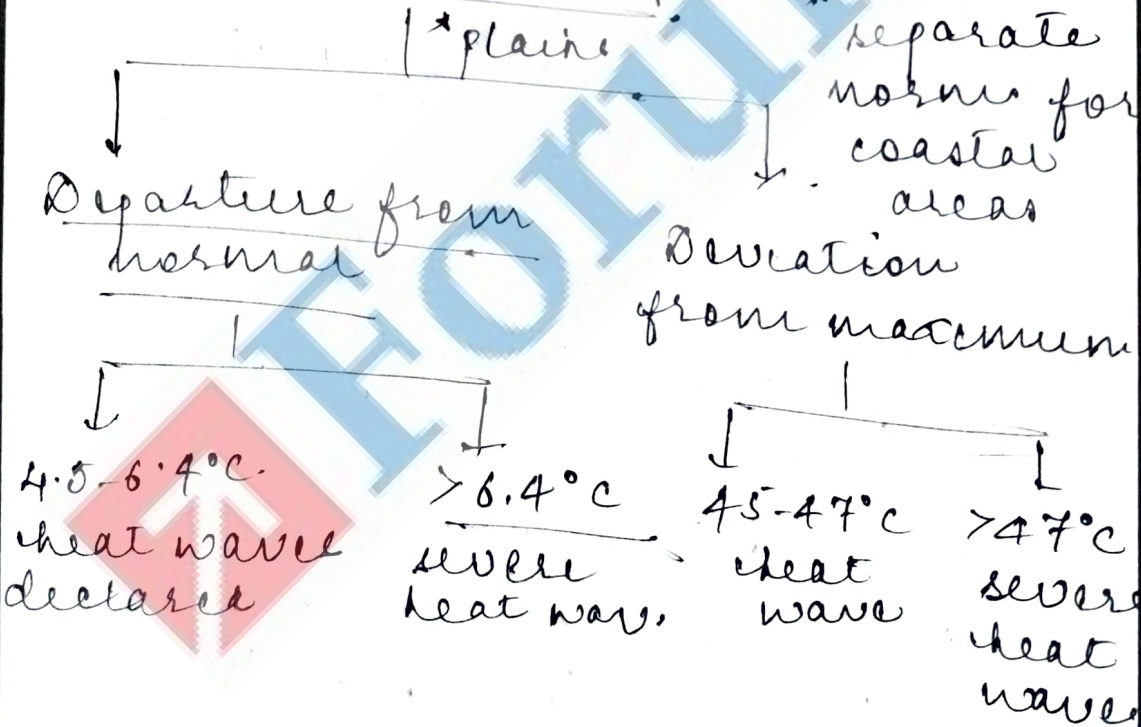 *plains
separate
norms for
coastal
areas
Departure from
normal
Deviation
from maximum
4.5-6.4°C.
heat wave
declared
>6.4°C
severe
heat wav.
45-47°C
heat
wave
>47°C
severe
heat
wave
Forum